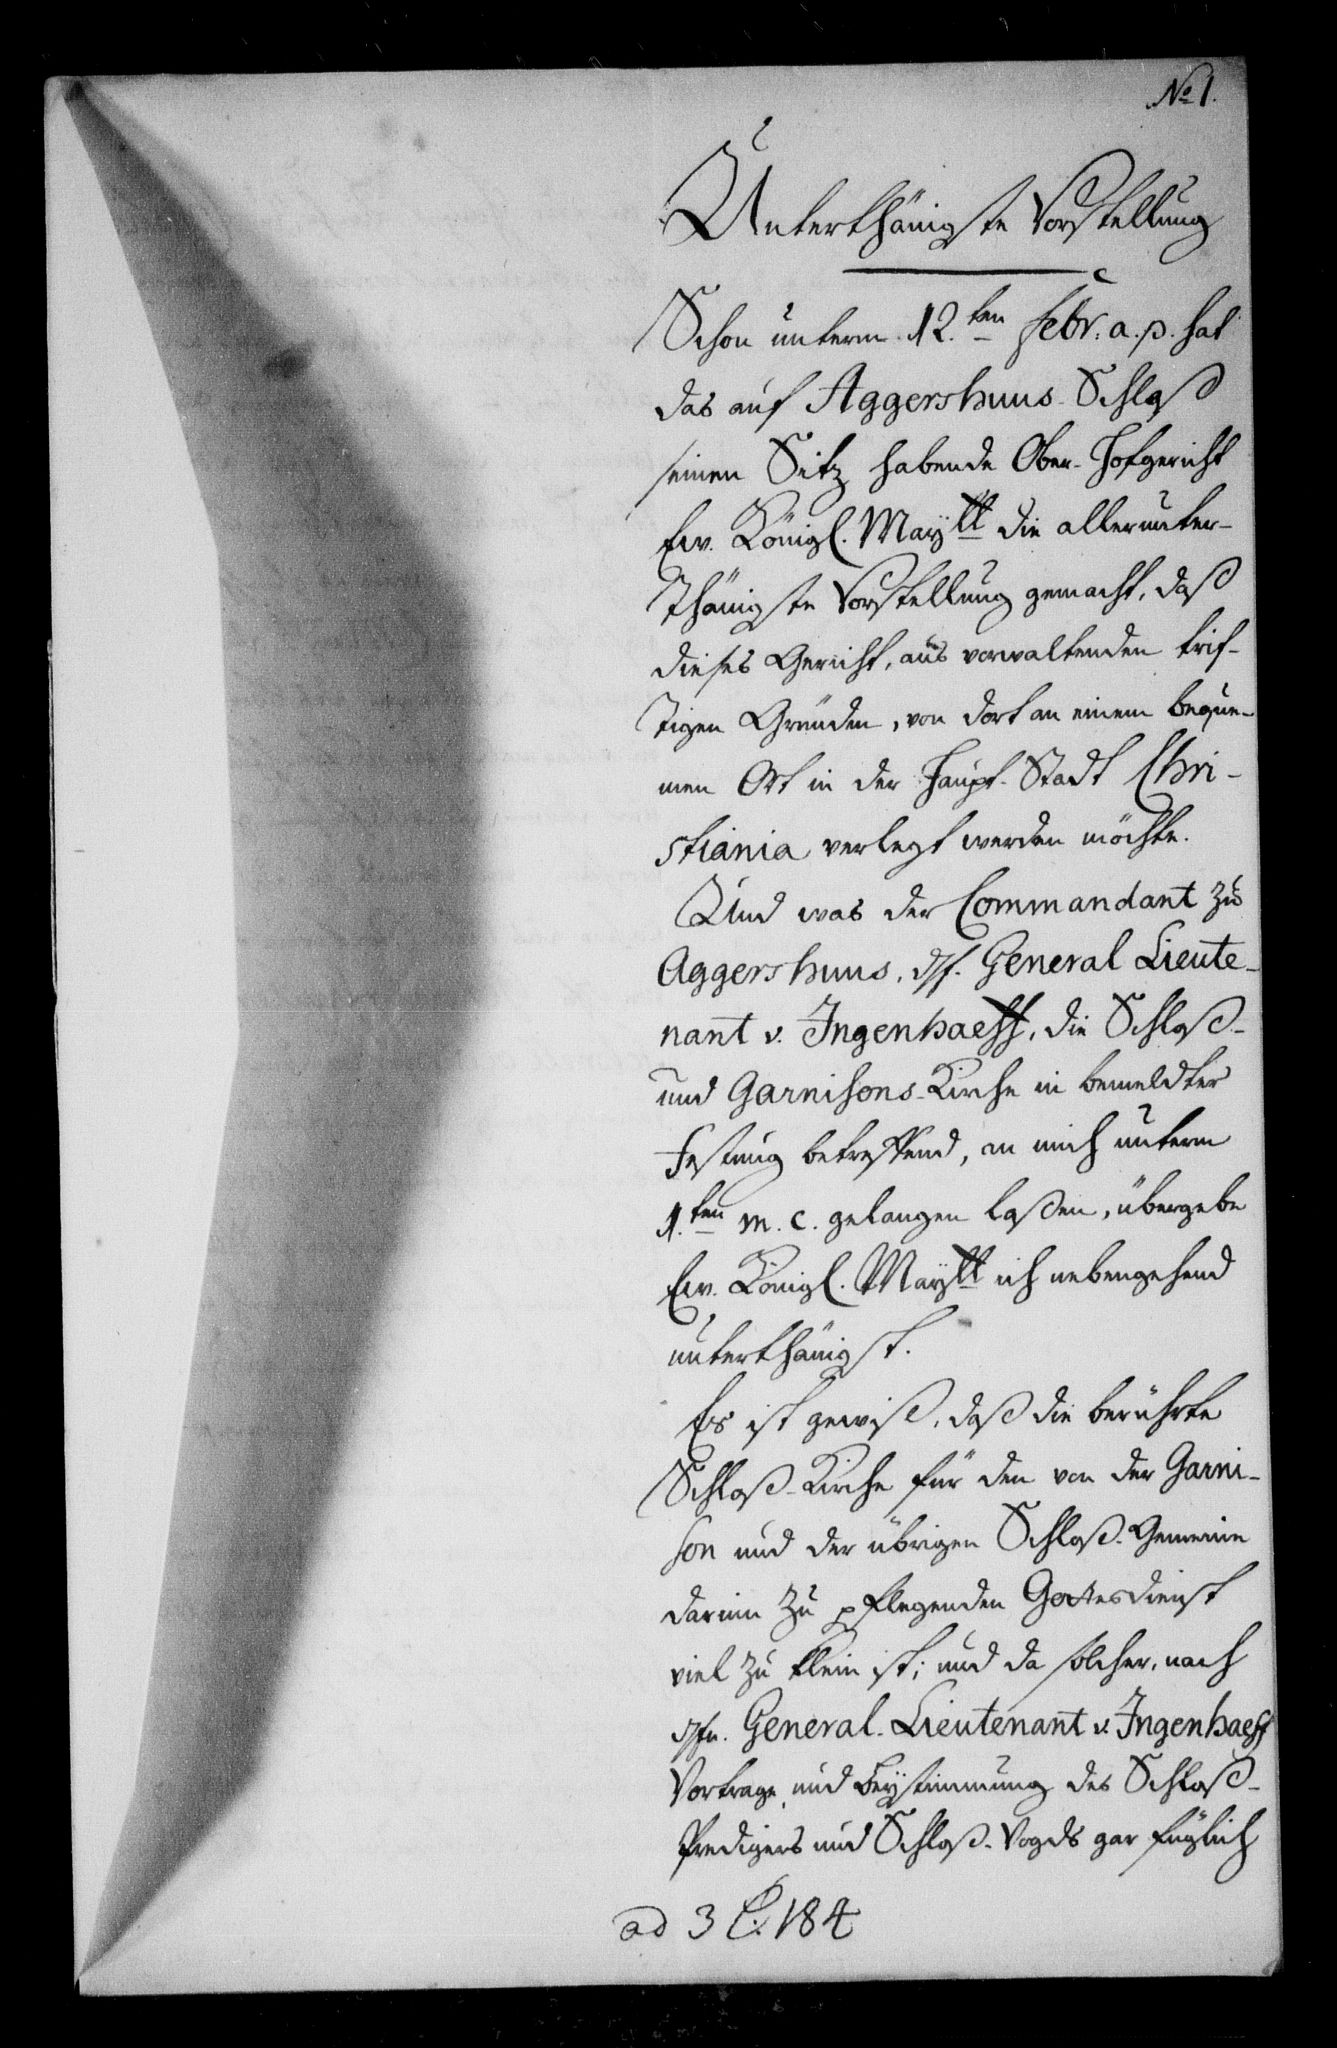 No 1.
Unterthänigste Vorstellung
Schon unterm 12.ten Febr. a. p. hat
das auf Aggershuus Schloß
seinen Sitz habende Ober-Hofgericht
Ew. Königl. Maytt die allerunter-
thänigste Vorstellung gemacht, daß
dieses Gericht, aus vorwaltenden trif-
tigen Gründen, von dort an einem beque-
men Ort in der Haupt-Stadt Chri-
stiania verlegt werden möchte.
Und was der Commandant zu
Aggershuus, Hr. General Lieute-
nant v. Ingenhaeff, die Schloß-
und Garnisons-Kirche in bemeldter
Festung betreffend, an mich unterm
1.ten m. c. gelangen laßen, übergebe
Ew. Königl. Maytt ich nebengehend
unterthänigst.
Es ist gewiß, daß die berührte
Schloß-Kirche für den von der Garni-
son und der übrigen Schloß-Gemeine
darinn zu pflegenden Gottesdienst
viel zu klein ist; und da solcher, nach
Hrn. General-Lieutenant v. Ingenhaeff
Vortrage und Beystimmung des Schloß-
Predigers und Schloß-Vogds gar füglich
ad 3 C. 184